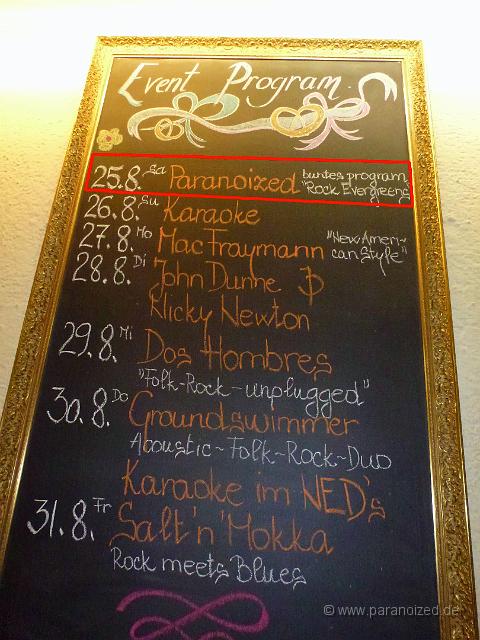 Event Program
25.8. Sa Paranoized buntes program "Rock Evergreens"
26.8. Su Karaoke
27.8. Mo Mac Fraymann "New Ameri-
can Style"
28.8. Di John Dunne
Klicky Newton
29.8. Mi Dos Hombres
"Folk-Rock-unplugged"
30.8. Do Groundswimmer
Acoustic-Folk-Rock-Duo
Karaoke im NED's
31.8. Fr Salt'n'Mokka
Rock meets Blues
© www.paranoized.de